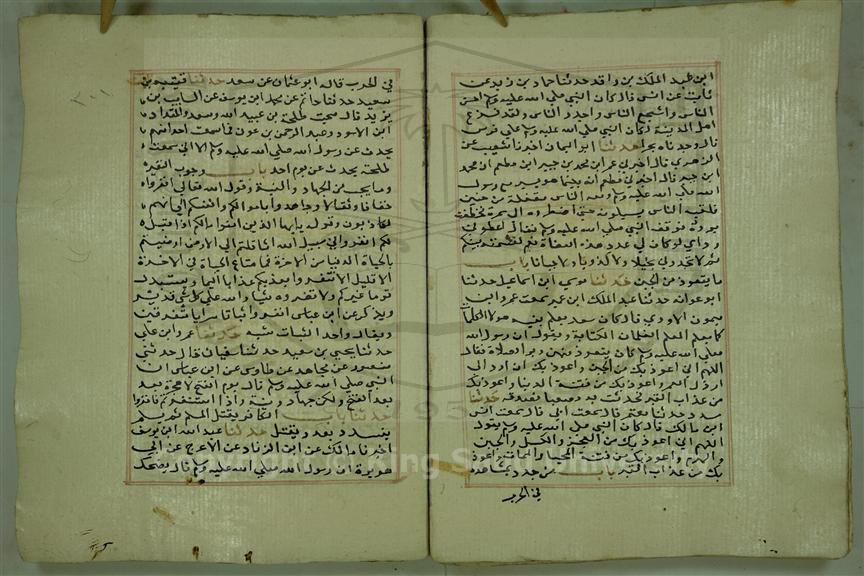 ابن عبد الملك بن واقد حدثنا حماد بن زيد عن
ثابت عن انس قال كان النبي صلى الله عليه وسلم احسن
الناس واشجع الناس واجود الناس ولقد فزع
اهل المدينة وكان النبي صلى الله عليه وسلم على فرس
قال وجدناه بحرا حدثنا ابو اليمان اخبرنا شعيب عن
الزهري قال اخبرني عمر ابن محمد بن جبير ابن مطعم ان محمد
ابن جبير قال اخبرني مطعم ان بينما هو يسير مع رسول
الله صلى الله عليه وسلم ومعه الناس مقفله من حنين
فلقيه الناس يسيلونه حتى اضطروه الى سمرة فخطفت
فوقف النبي صلى الله عليه وسلم فقال اعطوني
رداي لو كان لي عدد هذه العضاة نعم لقسمته بينكم
ثم لا تجدوني بخيلا ولا كذوبا ولا جبانا باب
ما يتعوذ من الجبن حدثنا موسى ابن اسماعيل حدثنا
ابو عوانه حدثنا عبد الملك ابن عمير سمعت عمرو ابن
ميمون الاودي قال كان سعد يعلم بنيه هولا الكلمات
كما يعلم المعلم الغلمان الكتابة ويقول ان رسول الله
صلى الله عليه وسلم كان يتعوذ منهن دبر الصلاة فقال
اللهم اني اعوذ بك من الجبن واعوذ بك ان ارد الى
ارذل العمر واعوذ بك من فتنة الدنيا واعوذ بك
من عذاب القبر فحدثت به مصعبا فصدقه حدثنا
مسدد حدثنا معتمر قال سمعت ابي قال سمعت انس
ابن مالك قال كان النبي صلى الله عليه وسلم يقول
اللهم اني اعوذ بك من العجز والكسل والجبن
والهرم واعوذ بك من فتنة المحيا والممات واعوذ
بك من عذاب القبر باب من حدث بمشاهده
في الحرب
٢٠١
في الحرب قاله ابو عثمان عن سعد حدثنا قتيبه بن
سعيد حدثنا حاتم عن محمد ابن يوسف عن السايب بن
يزيد قال صحبت طلحة بن عبيد الله وسعد والمقداد
ابن الاسود وعبد الرحمن بن عوف فما سمعت احدا منهم
يحدث عن رسول الله صلى الله عليه وسلم الا اني سمعت
طلحة يحدث عن يوم احد باب وجوب النفير
وما يجب من الجهاد والنية وقول الله تعالى انفروا
خفافا وثقالا وجاهدوا باموالكم وانفسكم الى انهم
لكاذبون وقوله يا ايها الذين امنوا ما لكم اذا قيل
لكم انفروا في سبيل الله اثاقلتم الى الارض ارضيتم
بالحياة الدنيا من الاخرة فما متاع الحياة في الاخرة
الا قليل الا تنفروا يعذبكم عذابا اليما ويستبدل
قوما غيركم ولا تضروه شيا والله على كل شي قدير
ويذكر عن ابن عباس انفروا ثباتا سرايا متفرقين
ويقال واحد الثبات ثبه حدثنا عمرو ابن علي
حدثنا يحيى بن سعيد حدثنا سفيان قال حدثني
منصور عن مجاهد عن طاوس عن ابن عباس ان
النبي صلى الله عليه وسلم قال يوم الفتح لا هجرة بعد
بعد الفتح ولكن جهاد ونية واذا استنفرتم فانفروا
باب الكافر يقتل المسلم ثم يسلم
فيسدد بعد ويقتل حدثنا عبد الله ابن يوسف
اخبرنا مالك عن ابن الزناد عن الاعرج عن ابي
هريرة ان رسول الله صلى الله عليه وسلم قال يضحك